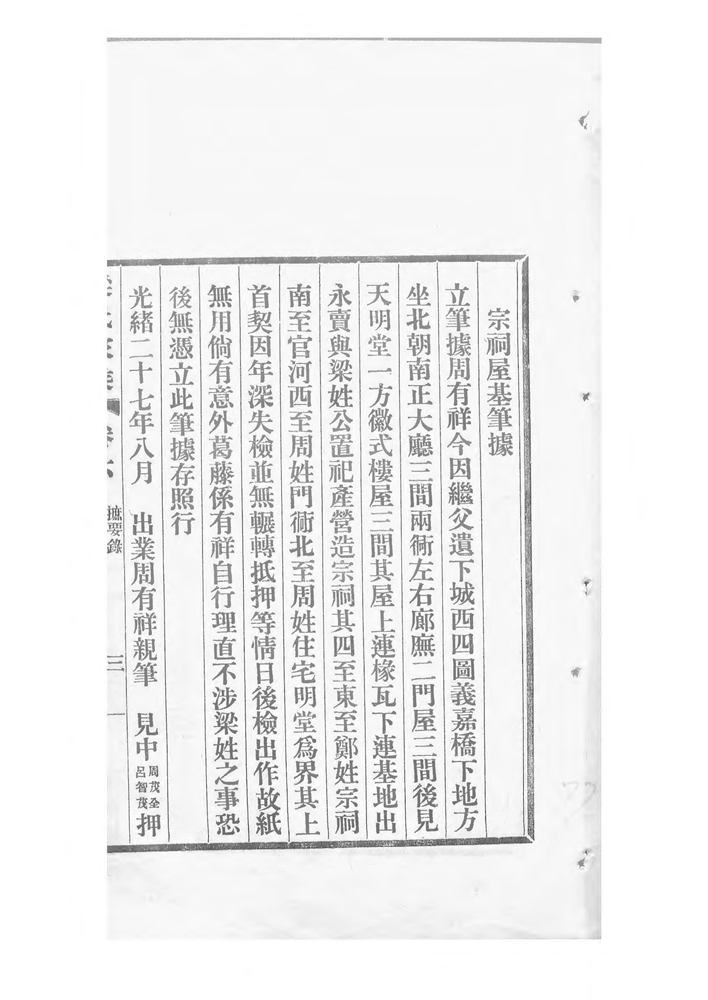 宗祠屋基筆據
立筆據周有祥今因繼父遺下城西四圖義嘉橋下地方
坐北朝南正大廳三間兩衖左右廊廡二門屋三間後見
天明堂一方徽式樓屋三間其屋上連椽瓦下連基地出
永賣與梁姓公置祀產營造宗祠其四至東至鄭姓宗祠
南至官河西至周姓門衖北至周姓住宅明堂爲界其上
首契因年深失檢並無輾轉抵押等情日後檢出作故紙
無用倘有意外葛藤係有祥自行理直不涉梁姓之事恐
後無憑立此筆據存照行
光緒二十七年八月 出業周有祥親筆 見中 周茂全 呂智茂 押
摭要錄
三